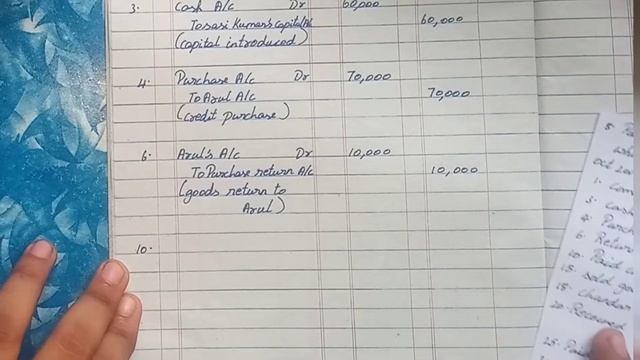 3. Cash A/c Dr 60,000
To Sasi Kumar's Capital A/c 60,000
(capital introduced)
4. Purchase A/c Dr 70,000
To Arul A/c 70,000
(credit purchase)
6. Arul's A/c Dr 10,000
To Purchase return A/c 10,000
(goods return to
Arul)
10.
5
Oct
1.
3. Cash
4. Purch
6. Return
10. Paid
15. Sold go
18.
20. Received
25. Paid